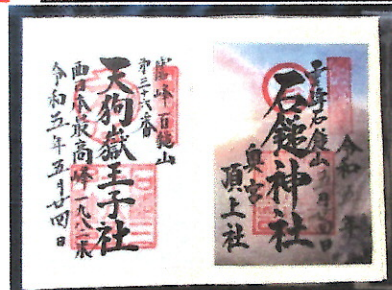 令和
霊峰石鎚山
石鎚神社
奥宮
頂上社
霊峰石鎚山
第三十六番
天狗嶽王子社
西日本最高峰 一九八二米
令和五年五月廿四日